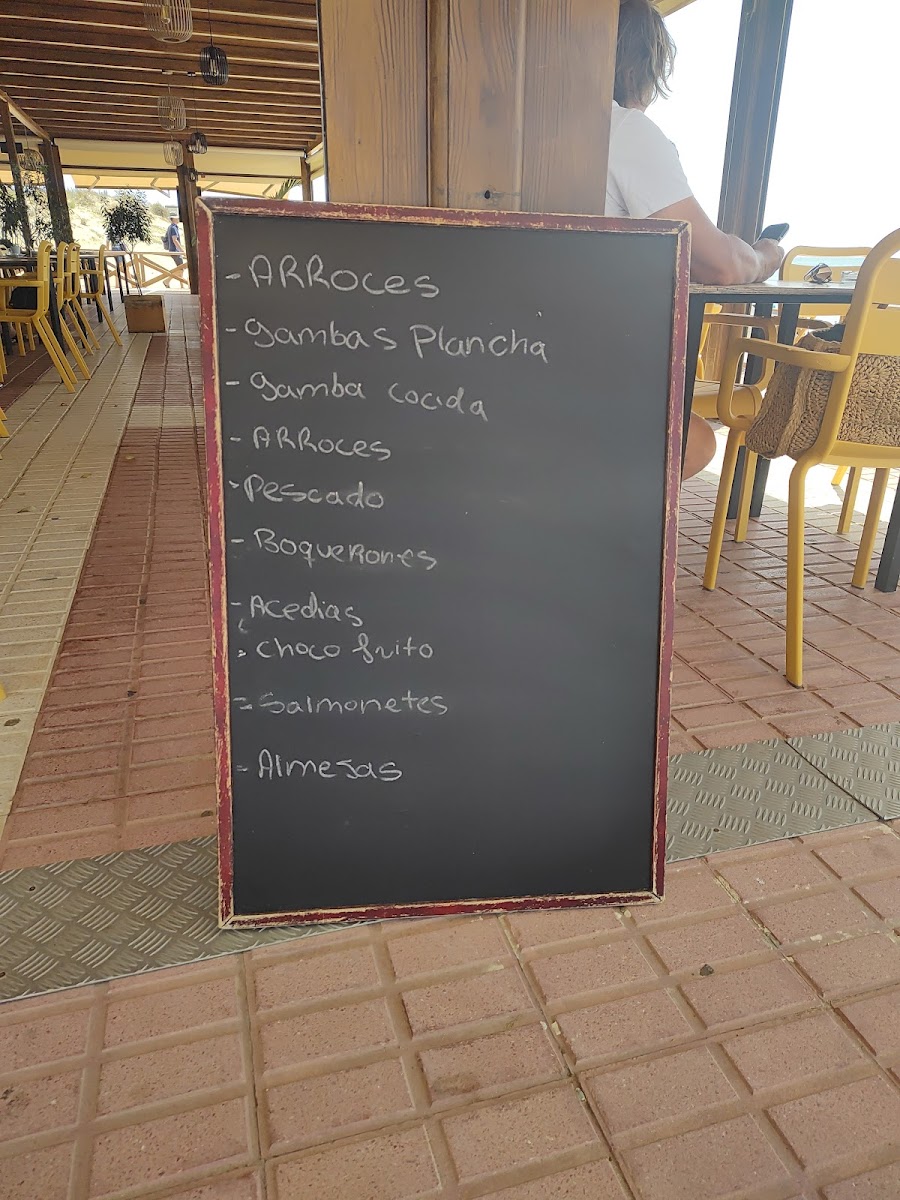 - ARROCES
- gambas Plancha
- gamba cocida
- ARROCES
- Pescado
- BoqueRones
- Acedias
- choco frito
- Salmonetes
- Almejas